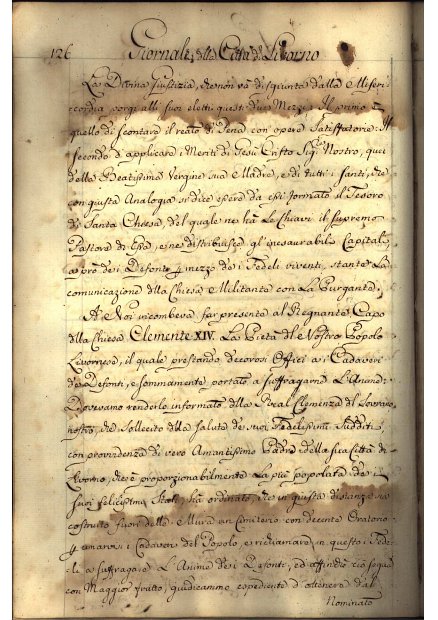 126 Giornale della Città di Livorno
La Divina Giustizia, che non và disgiunta dalla Miseri-
cordia porge alli suoi eletti questi due Mezzi. Il primo è
quello di scontare il reato di Pena con opere satisfattorie. Il
secondo d'applicare i Meriti di Gesù Cristo Sig.r Nostro, quei
della Beatissima Vergine sua Madre, e di tutti i santi, che
con giusta Analogia si dice essere da essi formato il Tesoro
di Santa Chiesa, del quale ne hà Le Chiavi il supremo
Pastore di Essa, e ne distribuisce gl'inesaurabili Capitali
a prò dei Defonti p mezzo dei Fedeli viventi, stante La
comunicazione dlla Chiesa Militante con La Purgante.
A Noi incombeva far presente al Regnante Capo
dlla Chiesa Clemente XIV. La Pietà del Nostro Popolo
Livornese, il quale prestando decorosi Offici ai Cadaveri
de Defonti, e sommamente portato a suffragarne L'Anime
Dovevamo renderlo informato dlla Real Clemenza del Sovrano
nostro, che sollecito dlla salute de suoi Fedelissimi Sudditi
con providenza di vero Amantissimo Padre della sua Città di
Livorno, che è proporzionabilmente La più popolata de
suoi felicissimi Stati, hà ordinato, che in giusta distanza sia
costruito fuori delle Mura un Cimiterio con decente Oratorio
p umarvi i Cadaveri del Popolo, e richiamare in questo i Fede-
li a suffragare L'Anime dei Defonti, ed affinchè ciò segua
con Maggior frutto, giudicammo espediente d'ottenere dal
Nominato